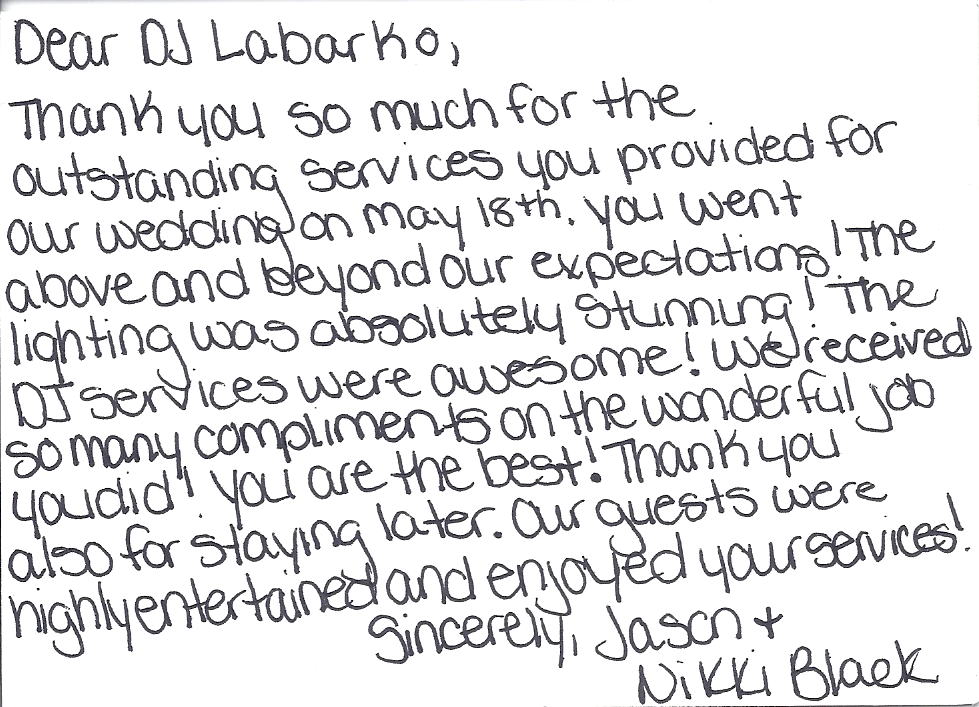 Dear DJ Labarko,
Thank you so much for the
outstanding services you provided for
our wedding on May 18th. You went
above and beyond our expectations! The
lighting was absolutely stunning! The
DJ services were awesome! We received
so many compliments on the wonderful job
you did! You are the best! Thank you
also for staying later. Our guests were
highly entertained and enjoyed your services!
Sincerely, Jason +
Nikki Black